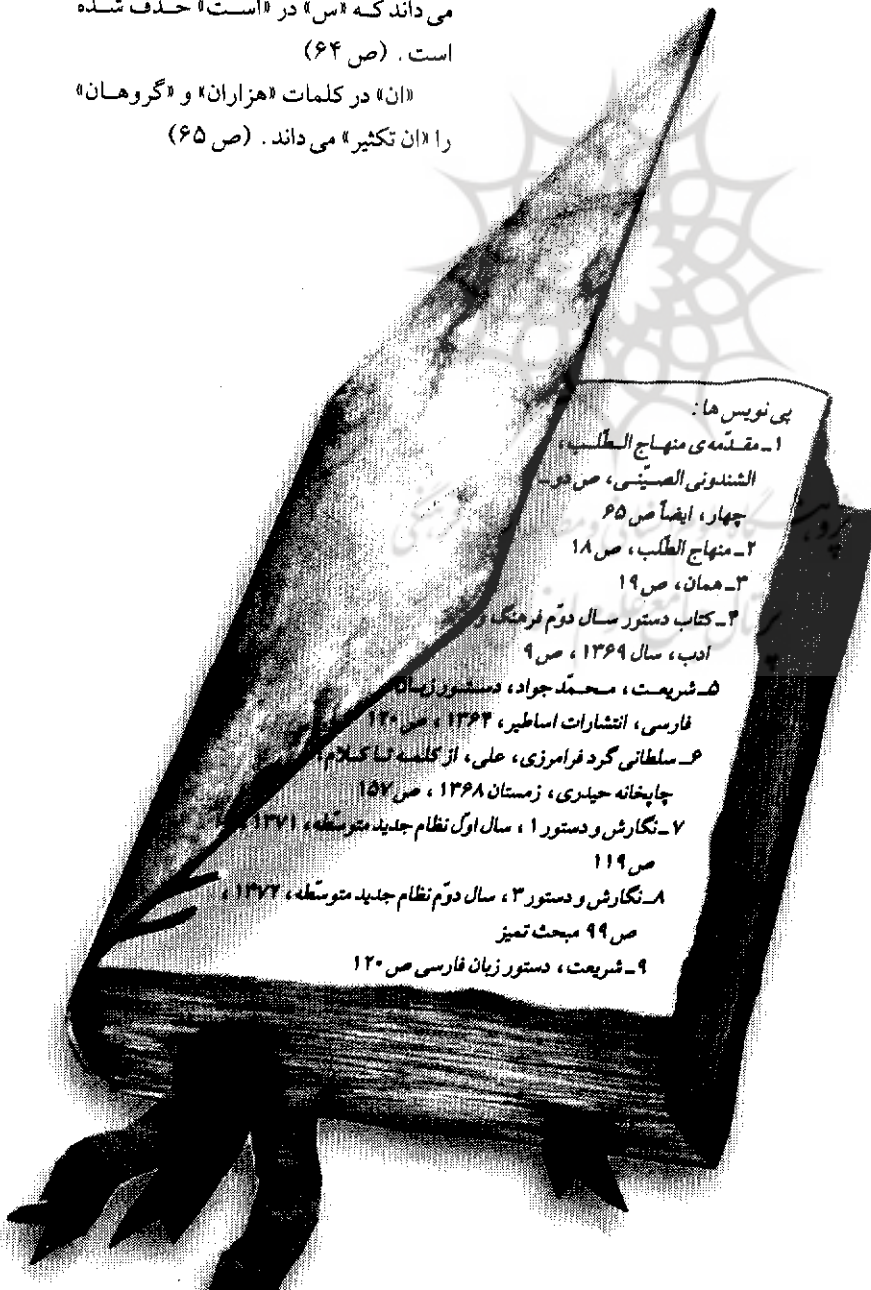 می داند که «س» در «است» حذف شده
است . (ص ۶۴)
«ان» در کلمات «هزاران» و «گروهان»
را «ان تکثیر» می داند . (ص ۶۵)
پی نویس ها :
۱ـ مقدّمه ی منهاج الطّلب ،
الشندونی الصیّنی ، ص دو ـ
چهار ، ایضاً ص ۶۵
۲ـ منهاج الطّلب ، ص ۱۸
۳ـ همان ، ص ۱۹
۴ـ کتاب دستور سال دوّم فرهنگ و
ادب ، سال ۱۳۶۹ ، ص ۹
۵ـ شریعت ، محمّد جواد ، دستور زبان
فارسی ، انتشارات اساطیر ، ۱۳۶۴ ، ص ۱۲۰
۶ـ سلطانی گرد فرامرزی ، علی ، از کلمه تا کلام ،
چاپخانه حیدری ، زمستان ۱۳۶۸ ، ص ۱۵۷
۷ـ نگارش و دستور ۱ ، سال اوّل نظام جدید متوسّطه ، ۱۳۷۱ ،
ص ۱۱۹
۸ـ نگارش و دستور ۳ ، سال دوّم نظام جدید متوسّطه ، ۱۳۷۲ ،
ص ۹۹ مبحث تمیز
۹ـ شریعت ، دستور زبان فارسی ص ۱۲۰